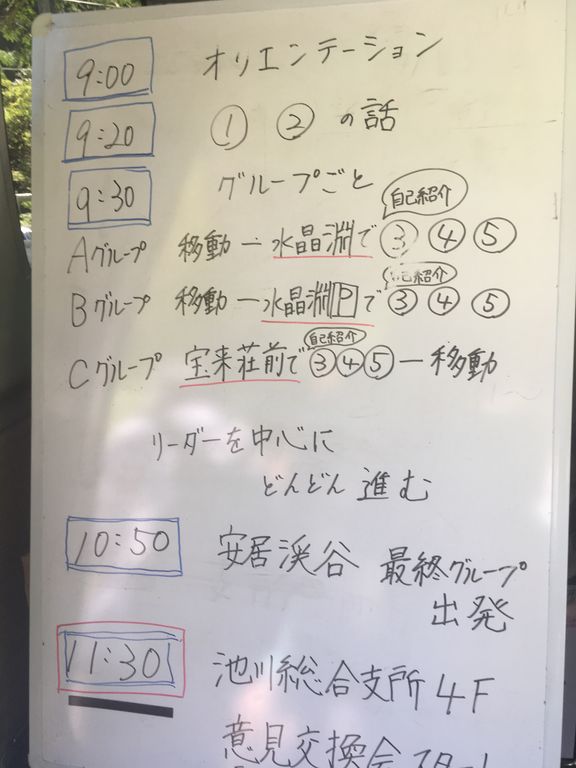 9:00 オリエンテーション
9:20 ① ② の話
9:30 グループごと
自己紹介
Aグループ 移動ー水晶淵で③ ④ ⑤
自己紹介
Bグループ 移動ー水晶淵Pで③ ④ ⑤
自己紹介
Cグループ 宝来荘前で③④⑤ー移動
リーダーを中心に
どんどん 進む
10:50 安居渓谷 最終グループ
出発
11:30 池川総合支所 4F
意見交換会スタート